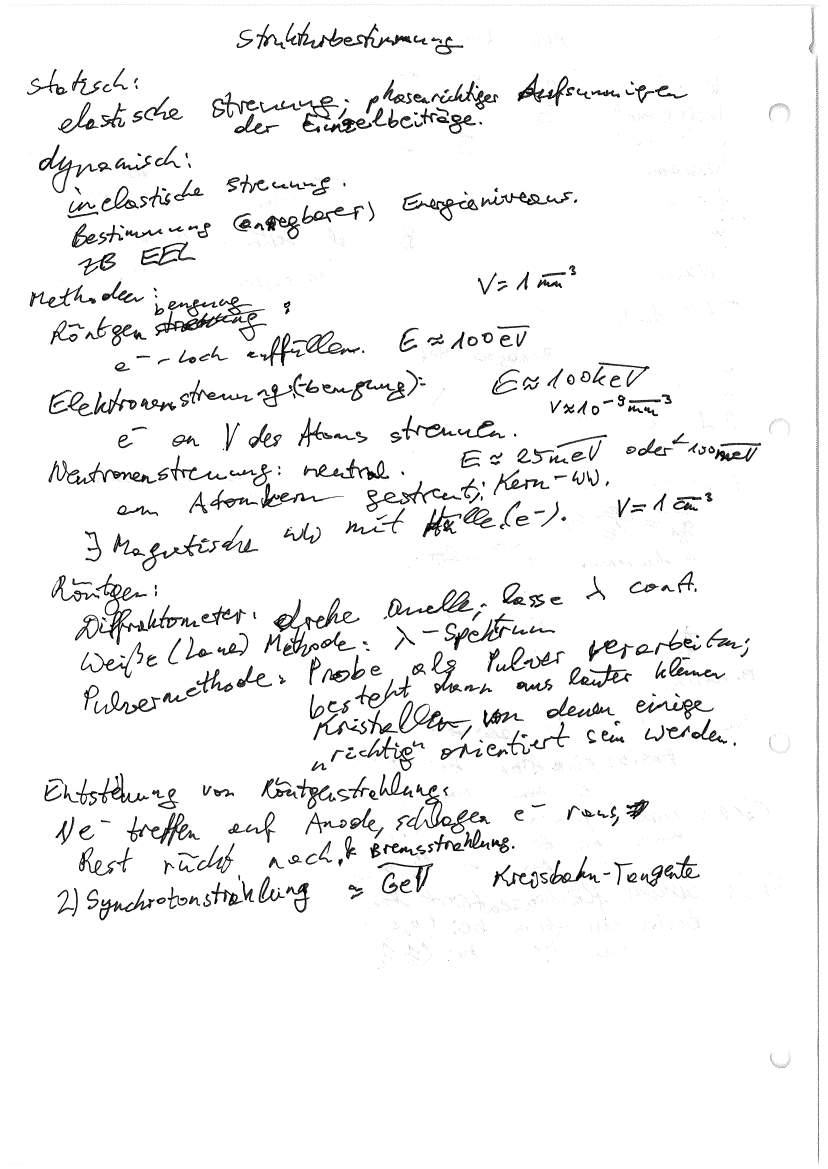 Strukturbestimmung
Statisch:
elastische Streuung; phasenrichtiger Aufsummieren
der Einzelbeiträge.
dynamisch:
inelastische Streuung.
Bestimmung (anregbarer) Energieniveaus.
ZB EEL
Methoden:
V = 1 mm³
Röntgenbeugung:
e⁻-Loch auffüllen. E ≈ 100 eV
Elektronenstreuung (-beugung): E ≈ 100 keV
V ≈ 10⁻⁹ mm³
e⁻ an V des Atoms streuen.
Neutronenstreuung: neutral. E ≈ 25 meV oder < 100 meV
am Atomkern gestreut; Kern-WW.
∃ Magnetische WW mit Hülle (e⁻). V = 1 cm³
Röntgen:
Diffraktometer: drehe Quelle; lasse λ const.
Weiße (Laue) Methode: λ-Spektrum
Pulvermethode: Probe als Pulver verarbeiten;
besteht dann aus lauter kleinen
Kristallen, von denen einige
„richtig" orientiert sein werden.
Entstehung von Röntgenstrahlung:
1) e⁻ treffen auf Anode, schlagen e⁻ raus,
Rest rückt nach. & Bremsstrahlung.
2) Synchrotonstrahlung ≈ GeV Kreisbahn-Tangente